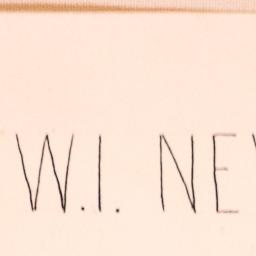 W.I. NE